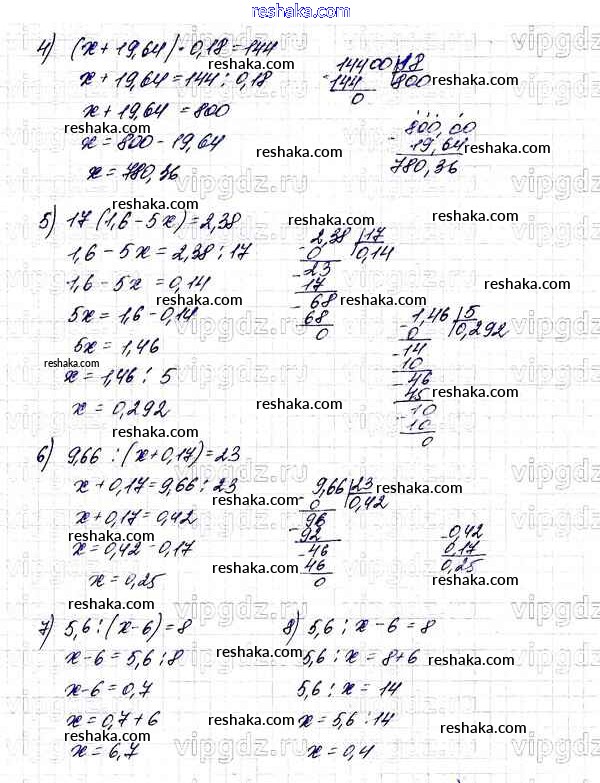 reshaka.com
4) (x + 19,64) · 0,18 = 144
x + 19,64 = 144 : 0,18
x + 19,64 = 800
reshaka.com
x = 800 - 19,64
x = 780,36
14400 | 18
- 144 800
0
reshaka.com
reshaka.com
- 800,00
19,64
reshaka.com
780,36
reshaka.com
5) 17 (1,6 - 5x) = 2,38
1,6 - 5x = 2,38 : 17
1,6 - 5x = 0,14
reshaka.com
5x = 1,6 - 0,14
5x = 1,46
reshaka.com
x = 1,46 : 5
x = 0,292
reshaka.com
reshaka.com
- 2,38 | 17
0 0,14
- 23
17
- 68
68
0
reshaka.com
reshaka.com
reshaka.com
- 1,46 | 5
0 0,292
- 14
10
- 46
45
- 10
10
0
reshaka.com
reshaka.com
6) 9,66 : (x + 0,17) = 23
x + 0,17 = 9,66 : 23
x + 0,17 = 0,42
reshaka.com
x = 0,42 - 0,17
x = 0,25
reshaka.com
reshaka.com
- 9,66 | 23
0 0,42
- 96
92
- 46
46
0
reshaka.com
- 0,42
0,17
0,25
reshaka.com
reshaka.com
7) 5,6 : (x - 6) = 8
x - 6 = 5,6 : 8
x - 6 = 0,7
reshaka.com
x = 0,7 + 6
reshaka.com
x = 6,7
reshaka.com
8) 5,6 : x - 6 = 8
5,6 : x = 8 + 6
reshaka.com
5,6 : x = 14
x = 5,6 : 14
reshaka.com
x = 0,4
vipgdz.ru